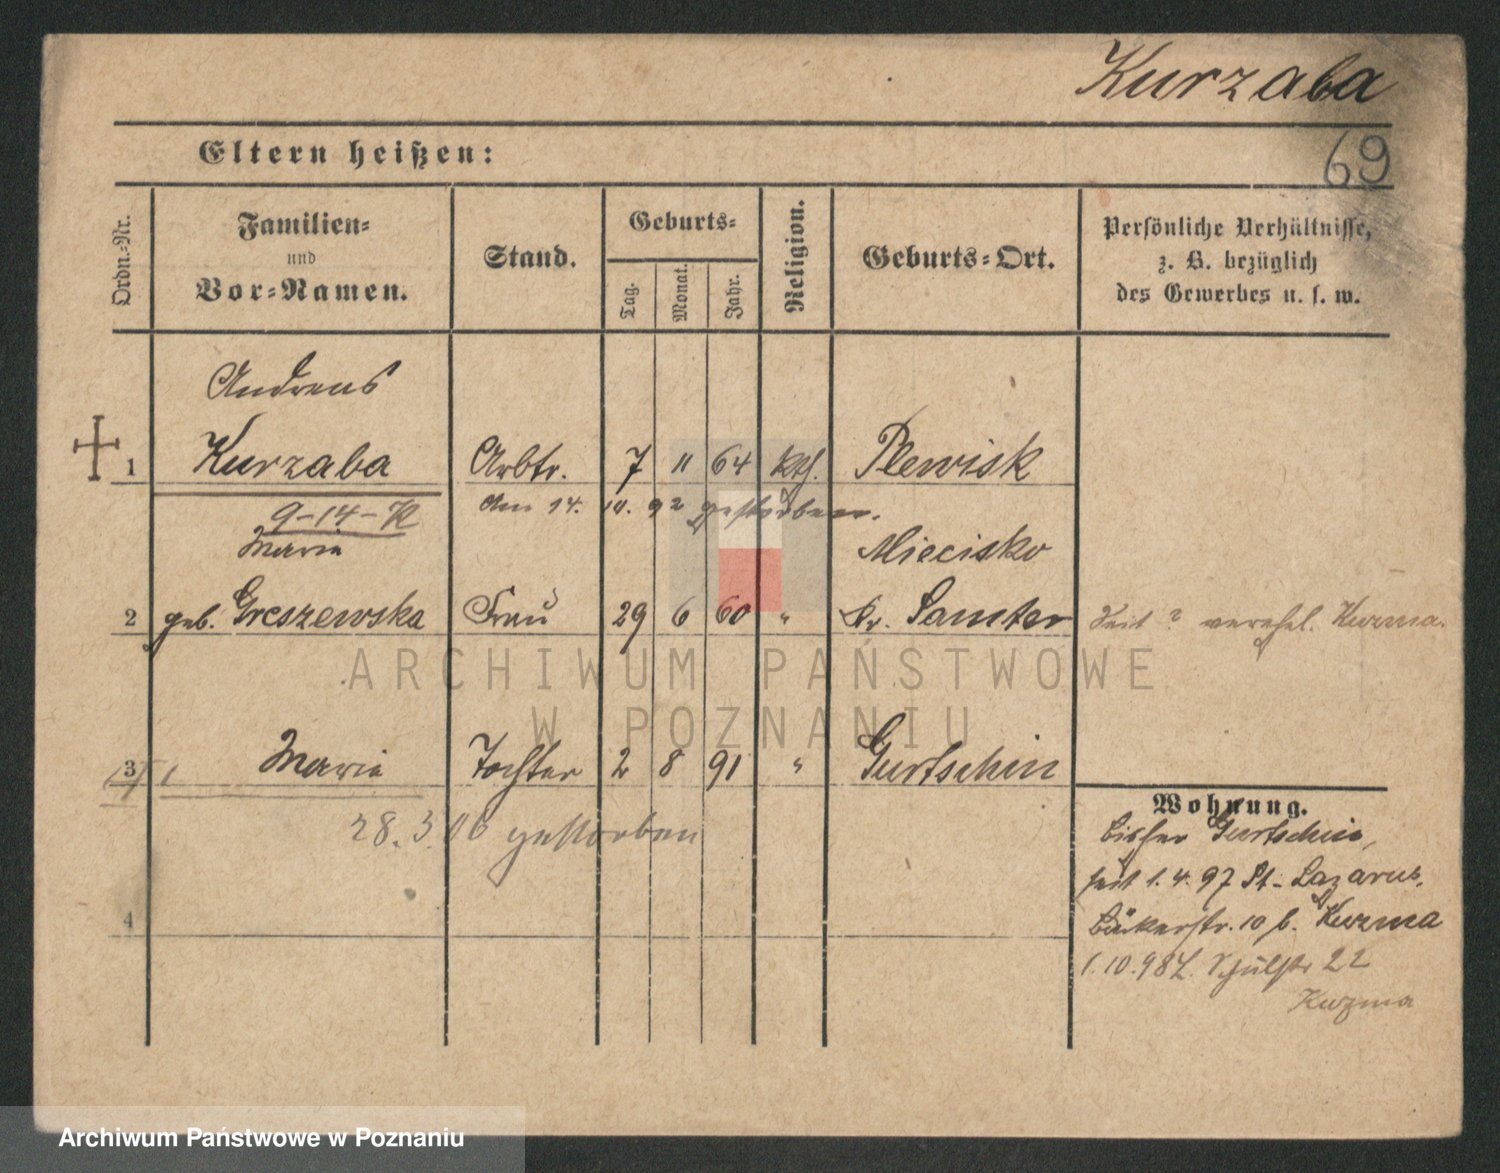 Kurzaba
69
Eltern heißen:
Ordn.-Nr.
Familien-
und
Vor-Namen.
Stand.
Geburts-
Tag.
Monat.
Jahr.
Religion.
Geburts-Ort.
Persönliche Verhältnisse,
z. B. bezüglich
des Gewerbes u. s. w.
Andreas
1 Kurzaba Arbtr. 7 11 64 kth. Plewisk
Am 14. 10. 92 gestorben.
9-14-
Marie
Miecisko
2 geb. Greszewska Frau 29 6 60 " Kr. Samter Seit ? verehel. Kuzma.
ARCHIWUM PAŃSTWOWE
W POZNANIU
3 Marie Tochter 2 8 91 " Gurtschin
28. 3. 06 gestorben
Wohnung.
bisher Gurtschin,
seit 1. 4. 97 St. Lazarus,
Bäckerstr. 10 b. Kuzma
1. 10. 98 L. Schulstr 22
Kuzma
4
Archiwum Państwowe w Poznaniu